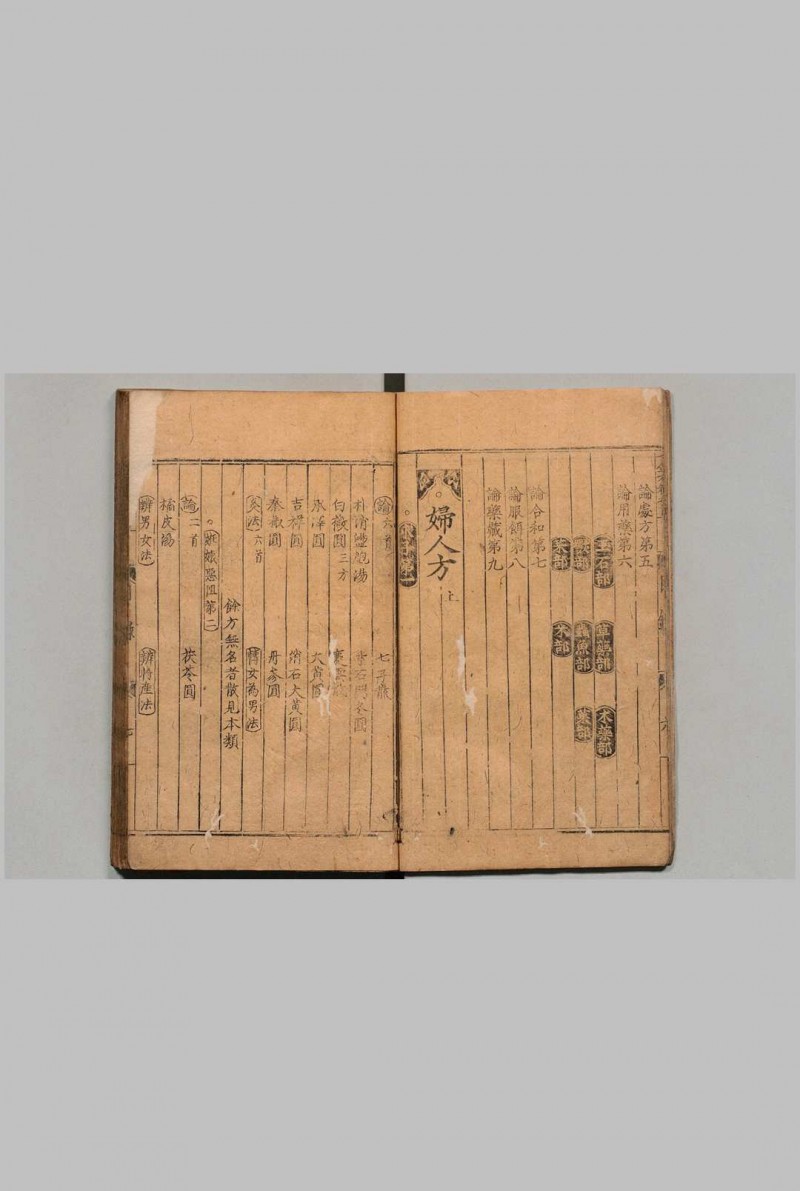 論處方第五
論用藥第六
玉石部 草藥部 木藥部
獸部 蟲魚部 菓部
菜部 米部
論合和第七
論服餌第八
論藥藏第九
婦人方 上
求子第一
論六首 七子散
朴消盪胞湯
白薇圓 三方
承澤圓 大黃圓
吉祥圓 消石大黃圓
秦椒圓 丹參圓
灸法 六首 轉女為男法
餘方無名者散見本類
妊娠惡阻第二
論二首 茯苓圓
橘皮湯
辨男女法 辨將產法